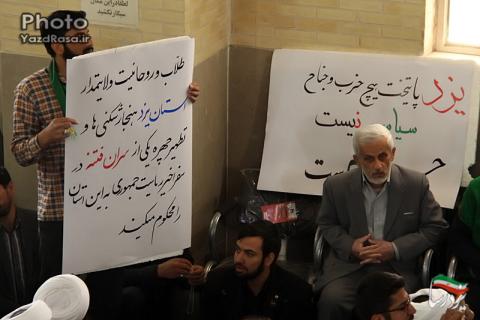 Photo
YazdRasa.ir
طلاب و روحانیت ولایتمدار
استان یزد هنجارشکنی ها و
تطهیر چهره یکی از سران فتنه در
سفر اخیر ریاست جمهوری به این استان
را محکوم میکنند
یزد پایتخت هیچ حزب و جناح
سیاسی نیست
لطفا در این مکان
سیگار نکشید